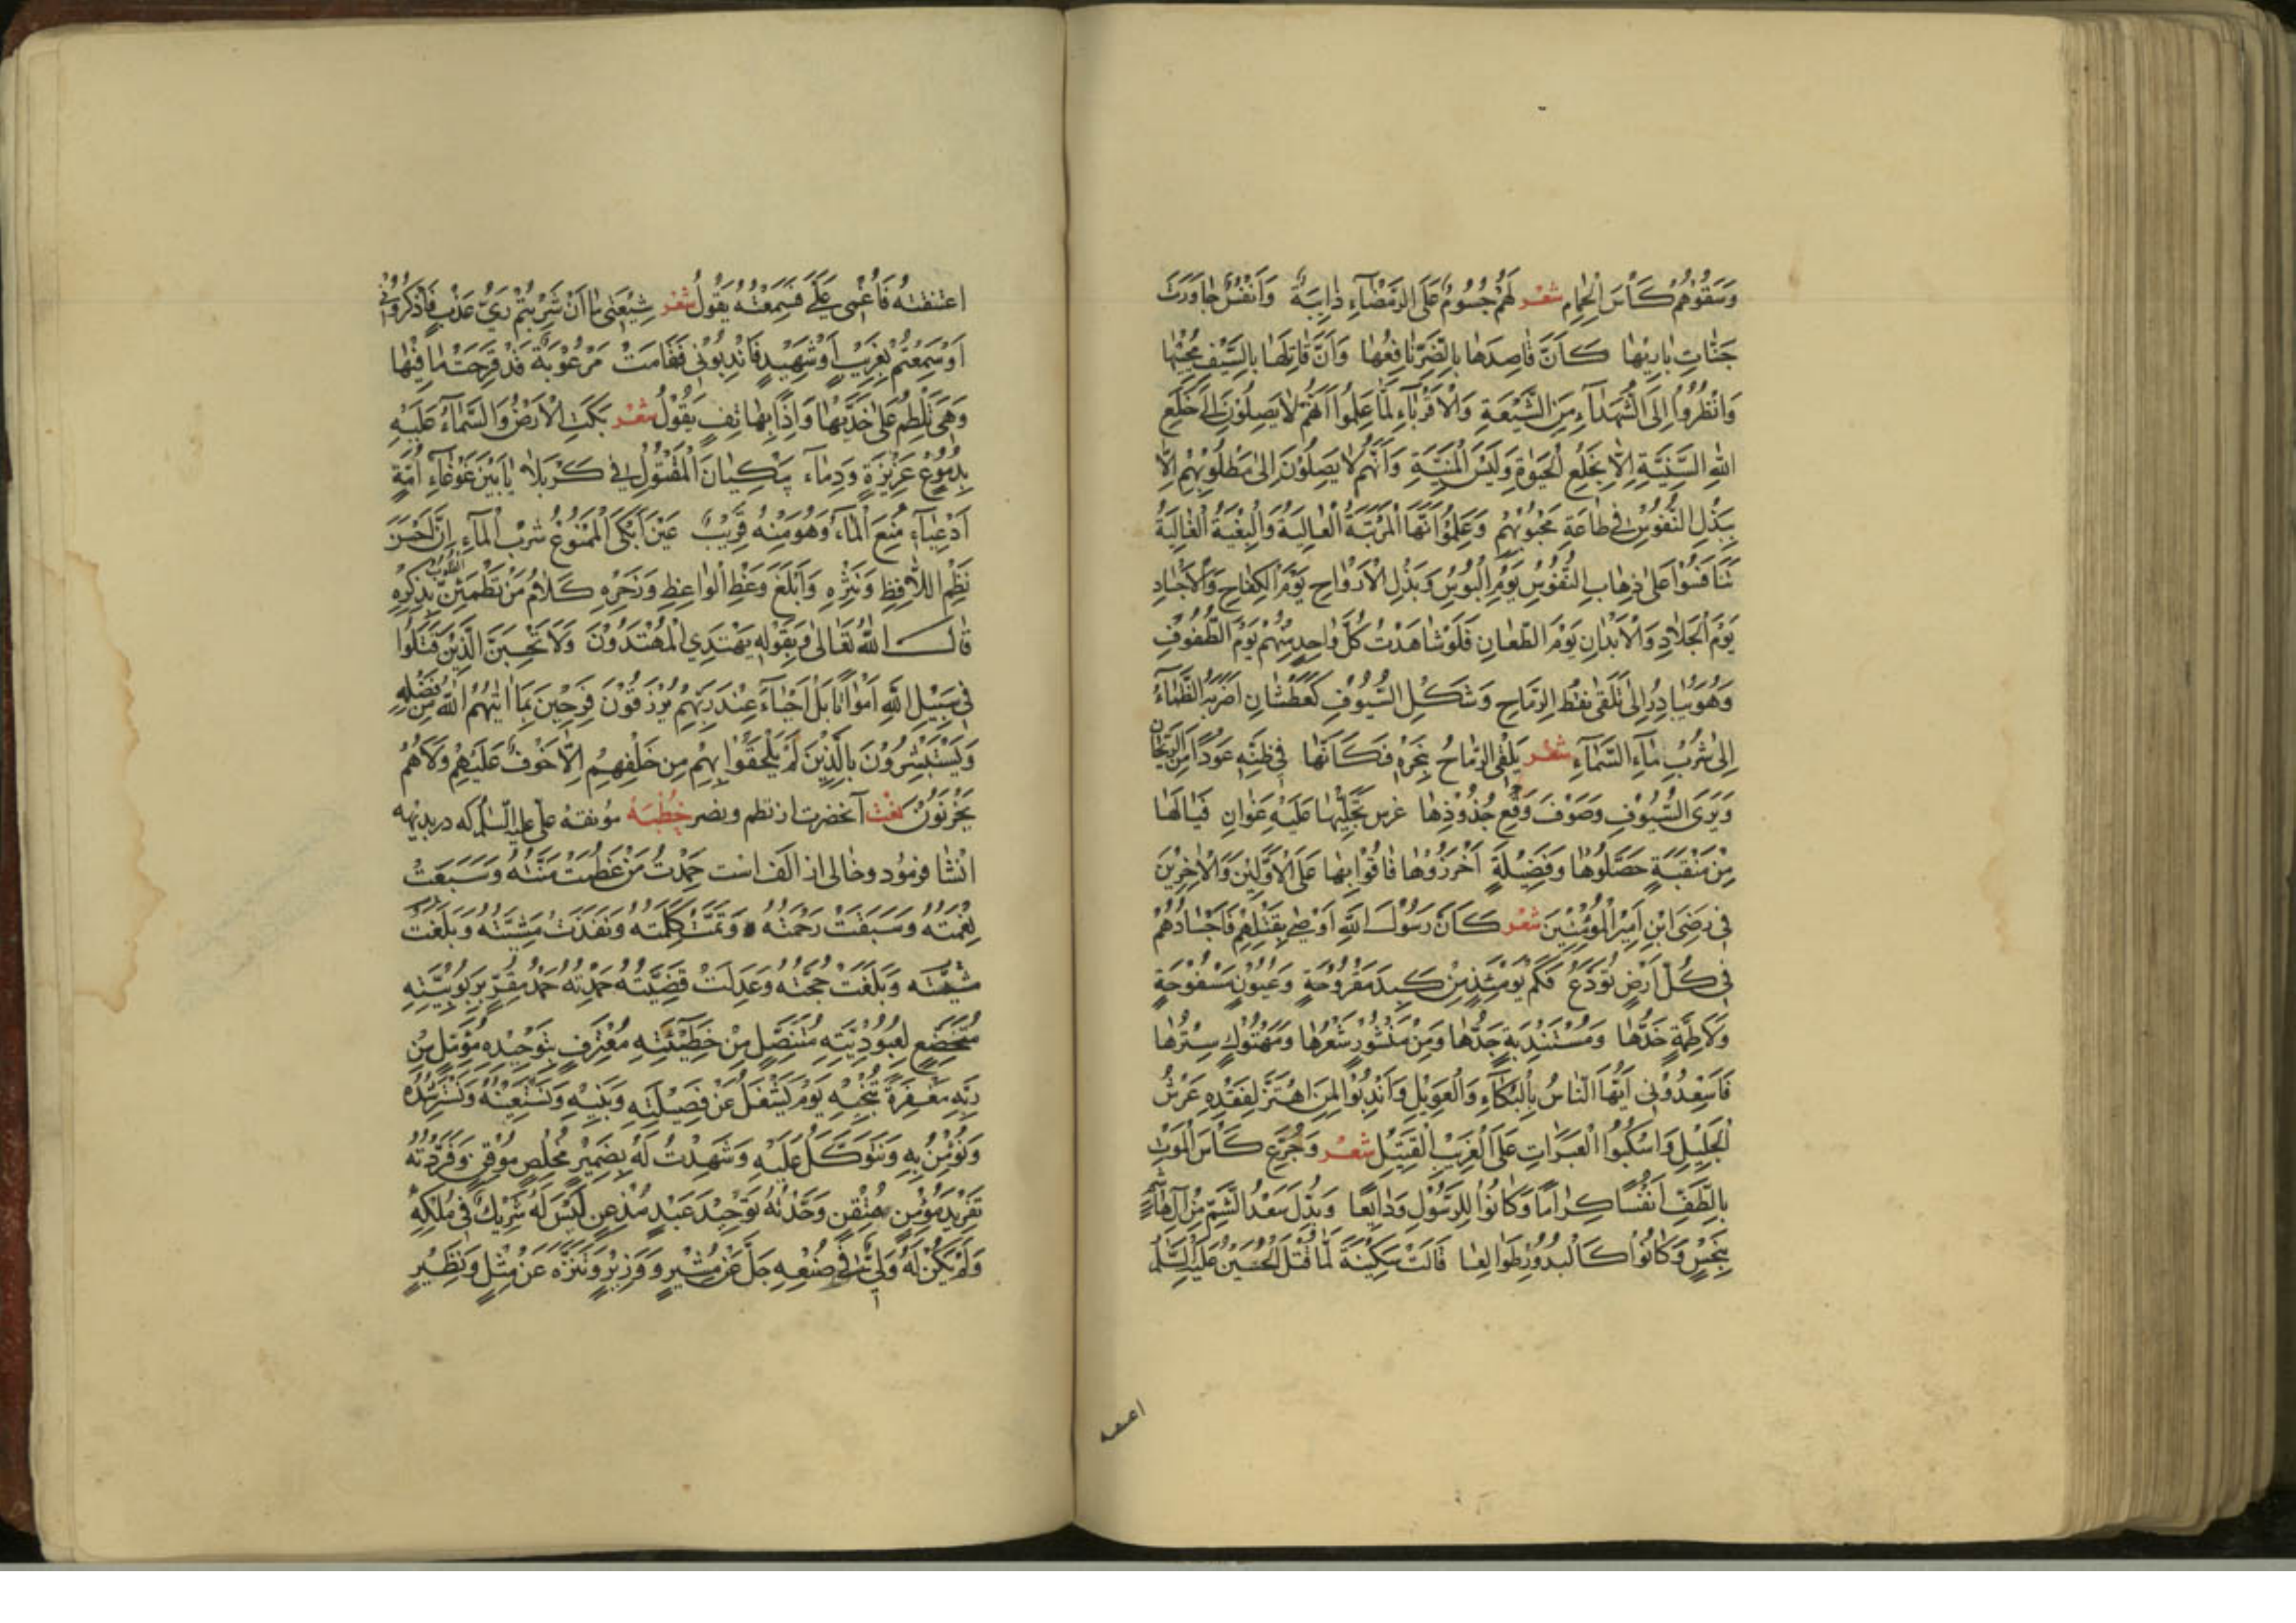 وَسَقَوْهُمْ كَأْسَ الْحِمَامِ شعر لَهُمْ جُسُومٌ عَلَى الرَّمْضَاءِ ذَائِبَةٌ وَأَنْفُسٌ جَاوَرَتْ
جَنَّاتِ بَارِيهَا كَأَنَّ قَاصِدَهَا بِالضُّرِّ نَافِعُهَا وَأَنَّ قَاتِلَهَا بِالسَّيْفِ مُحْيِيهَا
وَانْظُرُوا إِلَى الشُّهَدَاءِ مِنَ الشِّيعَةِ وَالْأَقْرِبَاءِ لَمَّا عَلِمُوا أَنَّهُمْ لَا يَصِلُونَ إِلَى خِلَعِ
اللهِ السَّنِيَّةِ إِلَّا بِخَلْعِ الْحَيٰوةِ وَلُبْسِ الْمَنِيَّةِ وَأَنَّهُمْ لَا يَصِلُوْنَ إِلَى مَطْلُوبِهِمْ إِلَّا
بِبَذْلِ النُّفُوسِ فِي طَاعَةِ مَحْبُوبِهِمْ وَعَلِمُوا أَنَّهَا الْمَرْتَبَةُ الْعَالِيَةُ وَالْبِغْيَةُ الْغَالِيَةُ
تَنَافَسُوا عَلَى ذِهَابِ النُّفُوسِ يَوْمَ الْبُؤْسِ وَبَذْلِ الْأَرْوَاحِ يَوْمَ الْكِفَاحِ وَالْأَجْسَادِ
يَوْمَ الْجِلَادِ وَالْأَبْدَانِ يَوْمَ الطِّعَانِ فَلَوْ شَاهَدْتَ كُلَّ وَاحِدٍ مِنْهُمْ يَوْمَ الطُّفُوفِ
وَهُوَ يُبَادِرُ إِلَى تَلَقِّي نَقْطِ الرِّمَاحِ وَشَكْلِ السُّيُوفِ كَعَطْشَانٍ أَضَرَّ بِهِ الظَّمَاءُ
إِلَى شُرْبِ مَاءِ السَّمَاءِ شعر يَلْقَى الرِّمَاحَ بِنَحْرِهِ فَكَأَنَّهَا فِي ظَنِّهِ عُودًا مِنَ الرَّيْحَانِ
وَيَرَى السُّيُوفَ وَصَوْتَ وَقْعِ جُذُوذِهَا عُرْسٌ تُجَلِّيهَا عَلَيْهِ غَوَانٍ فَيَا لَهَا
مِنْ مَنْقَبَةٍ حَصَّلُوهَا وَفَضِيلَةٍ أَحْرَزُوهَا فَاقُوا بِهَا عَلَى الْأَوَّلِينَ وَالْآخِرِينَ
فِي رِضَى ابْنِ أَمِيرِ الْمُؤْمِنِينَ شعر كَأَنَّ رَسُولَ اللهِ أَوْصَى بِقَتْلِهِمْ فَأَجْسَادُهُمْ
فِي كُلِّ أَرْضٍ تُوَزَّعُ فَكَمْ يَوْمَئِذٍ مِنْ كَبِدٍ مَقْرُوحَةٍ وَعُيُونٍ مَسْفُوحَةٍ
وَلَاطِمَةٍ خَدَّهَا وَمُسْتَنْدِبَةٍ جَدَّهَا وَمِنْ مَنْشُورٍ شَعْرُهَا وَمَهْتُوكٍ سِتْرُهَا
فَأَسْعِدُونِي أَيُّهَا النَّاسُ بِالْبُكَاءِ وَالْعَوِيلِ وَانْدُبُوا لِمَنِ اهْتَزَّ لِفَقْدِهِ عَرْشُ
الْجَلِيلِ وَاسْكُبُوا الْعَبَرَاتِ عَلَى الْغَرِيبِ الْقَتِيلِ شعر وَجُرِّعَ كَأْسَ الْمَوْتِ
بِالطَّفِّ أَنْفُسًا كِرَامًا وَكَانُوا لِلرَّسُولِ وَدَائِعًا وَبُدِّلَ سَعْدُ الشُّمِّ مِنْ آلِ هَاشِمٍ
بِنَحْسٍ وَكَانُوا كَالْبُدُورِ طَوَالِعًا قَالَتْ سَكِينَةُ لَمَّا قُتِلَ الْحُسَيْنُ عَلَيْهِ السَّلَامُ
اعتنقته
اعْتَنَقْتُهُ فَأُغْمِيَ عَلَيَّ فَسَمِعْتُهُ يَقُولُ شعر شِيعَتِي مَا أَنْ شَرِبْتُمْ رَيَّ عَذْبٍ فَاذْكُرُونِي
أَوْ سَمِعْتُمْ بِغَرِيبٍ أَوْ شَهِيدٍ فَانْدُبُونِي فَقَامَتْ مَرْعُوبَةً قَدْ قَرِحَتْ مَآقِيهَا
وَهِيَ تَلْطِمُ عَلَى خَدَّيْهَا وَإِذَا بِهَاتِفٍ يَقُولُ شعر بَكَتِ الْأَرْضُ وَالسَّمَاءُ عَلَيْهِ
بِدُمُوعٍ غَزِيرَةٍ وَدِمَاءٍ يَبْكِيَانِ الْمَقْتُولَ فِي كَرْبَلَا يَا بَيْنَ غَوْغَاءِ أُمَّةٍ
أَدْعِيَاءٍ مُنِعَ الْمَاءَ وَهُوَ مِنْهُ قَرِيبٌ عَيْنَ ابْكِي الْمَمْنُوعَ شُرْبَ الْمَاءِ إِنَّ أَحْسَنَ
نَظْمِ اللَّافِظِ وَنَثْرِهِ وَأَبْلَغَ وَعْظِ الْوَاعِظِ وَزَجْرِهِ كَلَامُ مَنْ تَطْمَئِنُّ الْقُلُوبُ بِذِكْرِهِ
قَالَ اللهُ تَعَالَى وَبِقَوْلِهِ يَهْتَدِي الْمُهْتَدُونَ وَلَا تَحْسَبَنَّ الَّذِينَ قُتِلُوا
فِي سَبِيلِ اللهِ أَمْوَاتًا بَلْ أَحْيَاءٌ عِنْدَ رَبِّهِمْ يُرْزَقُونَ فَرِحِينَ بِمَا آتٰيهُمُ اللهُ مِنْ فَضْلِهِ
وَيَسْتَبْشِرُونَ بِالَّذِينَ لَمْ يَلْحَقُوا بِهِمْ مِنْ خَلْفِهِمْ اَلَّا خَوْفٌ عَلَيْهِمْ وَلَا هُمْ
يَحْزَنُونَ آنحضرت از نظم ونصر خُطْبَهٔ مونقهٔ علي عليه السلام که در بدیهه
انشا فرمود وخالی از الف است حَمِدْتُ مَنْ عَظُمَتْ مِنَّتُهُ وَسَبَغَتْ
نِعْمَتُهُ وَسَبَقَتْ رَحْمَتُهُ وَتَمَّتْ كَلِمَتُهُ وَنَفَذَتْ مَشِيَّتُهُ وَبَلَغَتْ
وَبَلَغَتْ حُجَّتُهُ وَعَدَلَتْ قَضِيَّتُهُ حَمِدْتُهُ حَمْدَ مُقِرٍّ بِرُبُوبِيَّتِهِ
مُتَخَضِّعٍ لِعُبُودِيَّتِهِ مُتَنَصِّلٍ مِنْ خَطِيئَتِهِ مُعْتَرِفٍ بِتَوْحِيدِهِ مُؤَمِّلٍ مِنْ
رَبِّهِ مَغْفِرَةً تُنْجِيهِ يَوْمَ يُشْغَلُ عَنْ فَصِيلَتِهِ وَبَنِيهِ وَنَسْتَعِينُهُ وَنَسْتَرْشِدُهُ
وَنُؤْمِنُ بِهِ وَنَتَوَكَّلُ عَلَيْهِ وَشَهِدْتُ لَهُ بِضَمِيرٍ مُخْلِصٍ مُوقِنٍ وَفَرَّدْتُهُ
تَفْرِيدَ مُؤْمِنٍ مُتْقِنٍ وَحَّدْتُهُ تَوْحِيدَ عَبْدٍ مُذْعِنٍ لَيْسَ لَهُ شَرِيكٌ فِي مُلْكِهِ
وَلَمْ يَكُنْ لَهُ وَلِيٌّ فِي صُنْعِهِ جَلَّ عَنْ مُشِيرٍ وَوَزِيرٍ وَتَنَزَّهَ عَنْ مِثْلٍ وَنَظِيرٍ